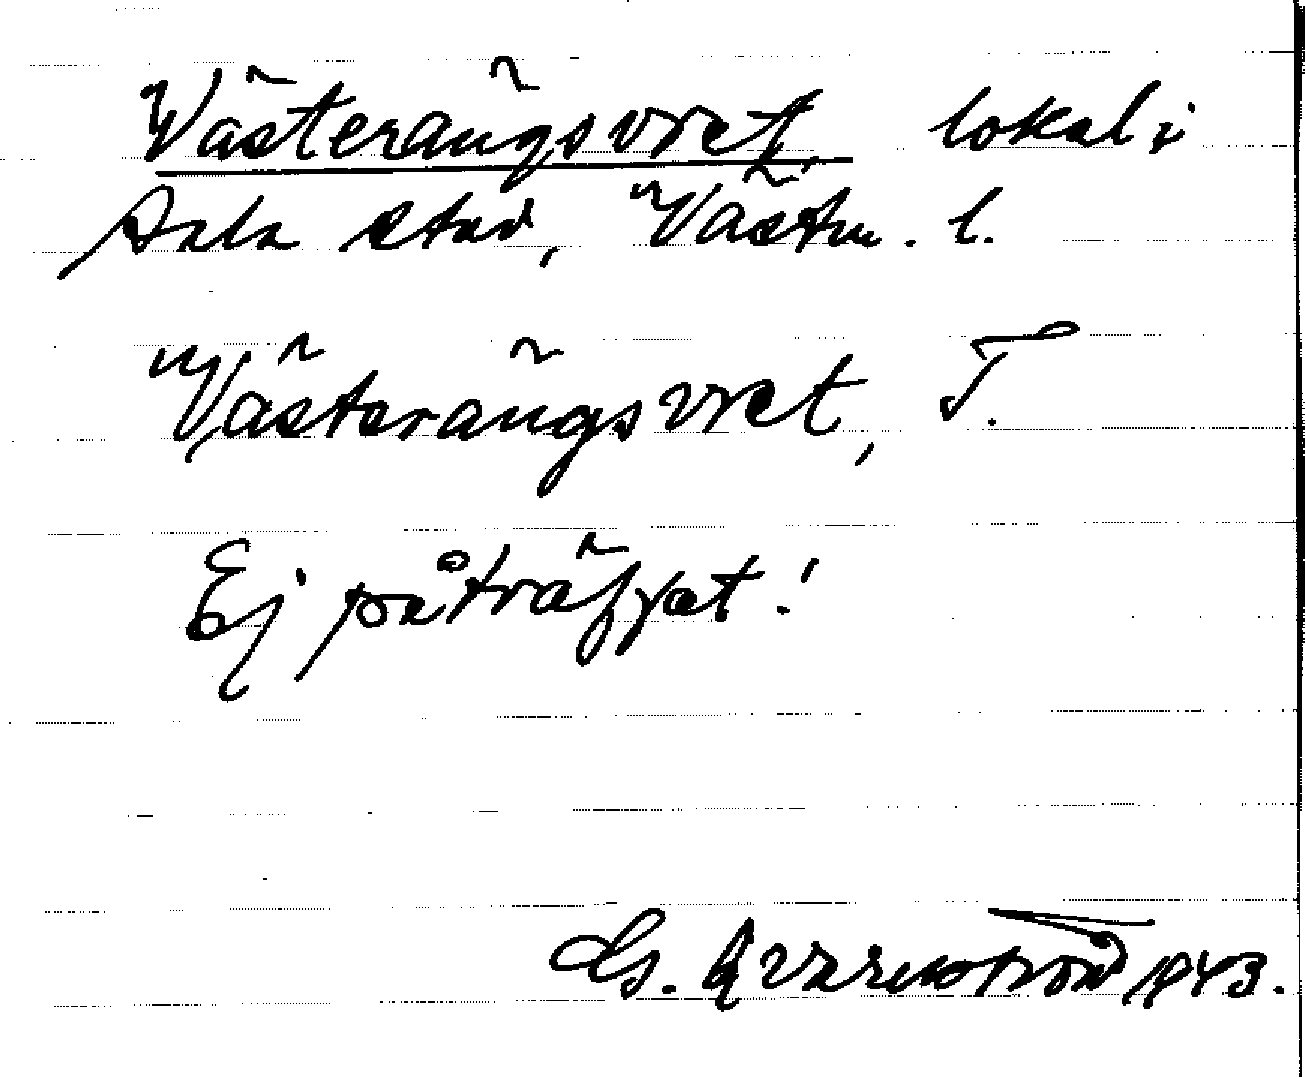 Västerängsvret, lokal i
Sala stad, Västm. l.
Västerängsvret, T.
Ej påträffat!
Gs. Qvarnström 1943.